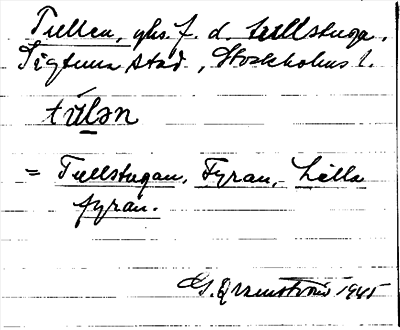 Tullen, ghs. f. d. tullstuga.
Sigtuna stad, Stockholms l.
tul̀ən
= Tullstugan, Fyran, Lilla
fyran.
1945